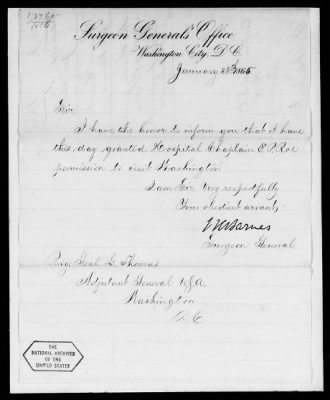 Surgeon General's Office
Washington City, D.C.
January 1865
Sir
I have the honor to inform you that I have
this day granted Hospital Chaplain E.P. Roe
permission to visit Washington
I am Sir Very respectfully
Your obedient servant,
Surgeon General
Brig. Genl L. Thomas
Adjutant General USA.
Washington
D.C
THE
NATIONAL ARCHIVES
OF THE
UNITED STATES